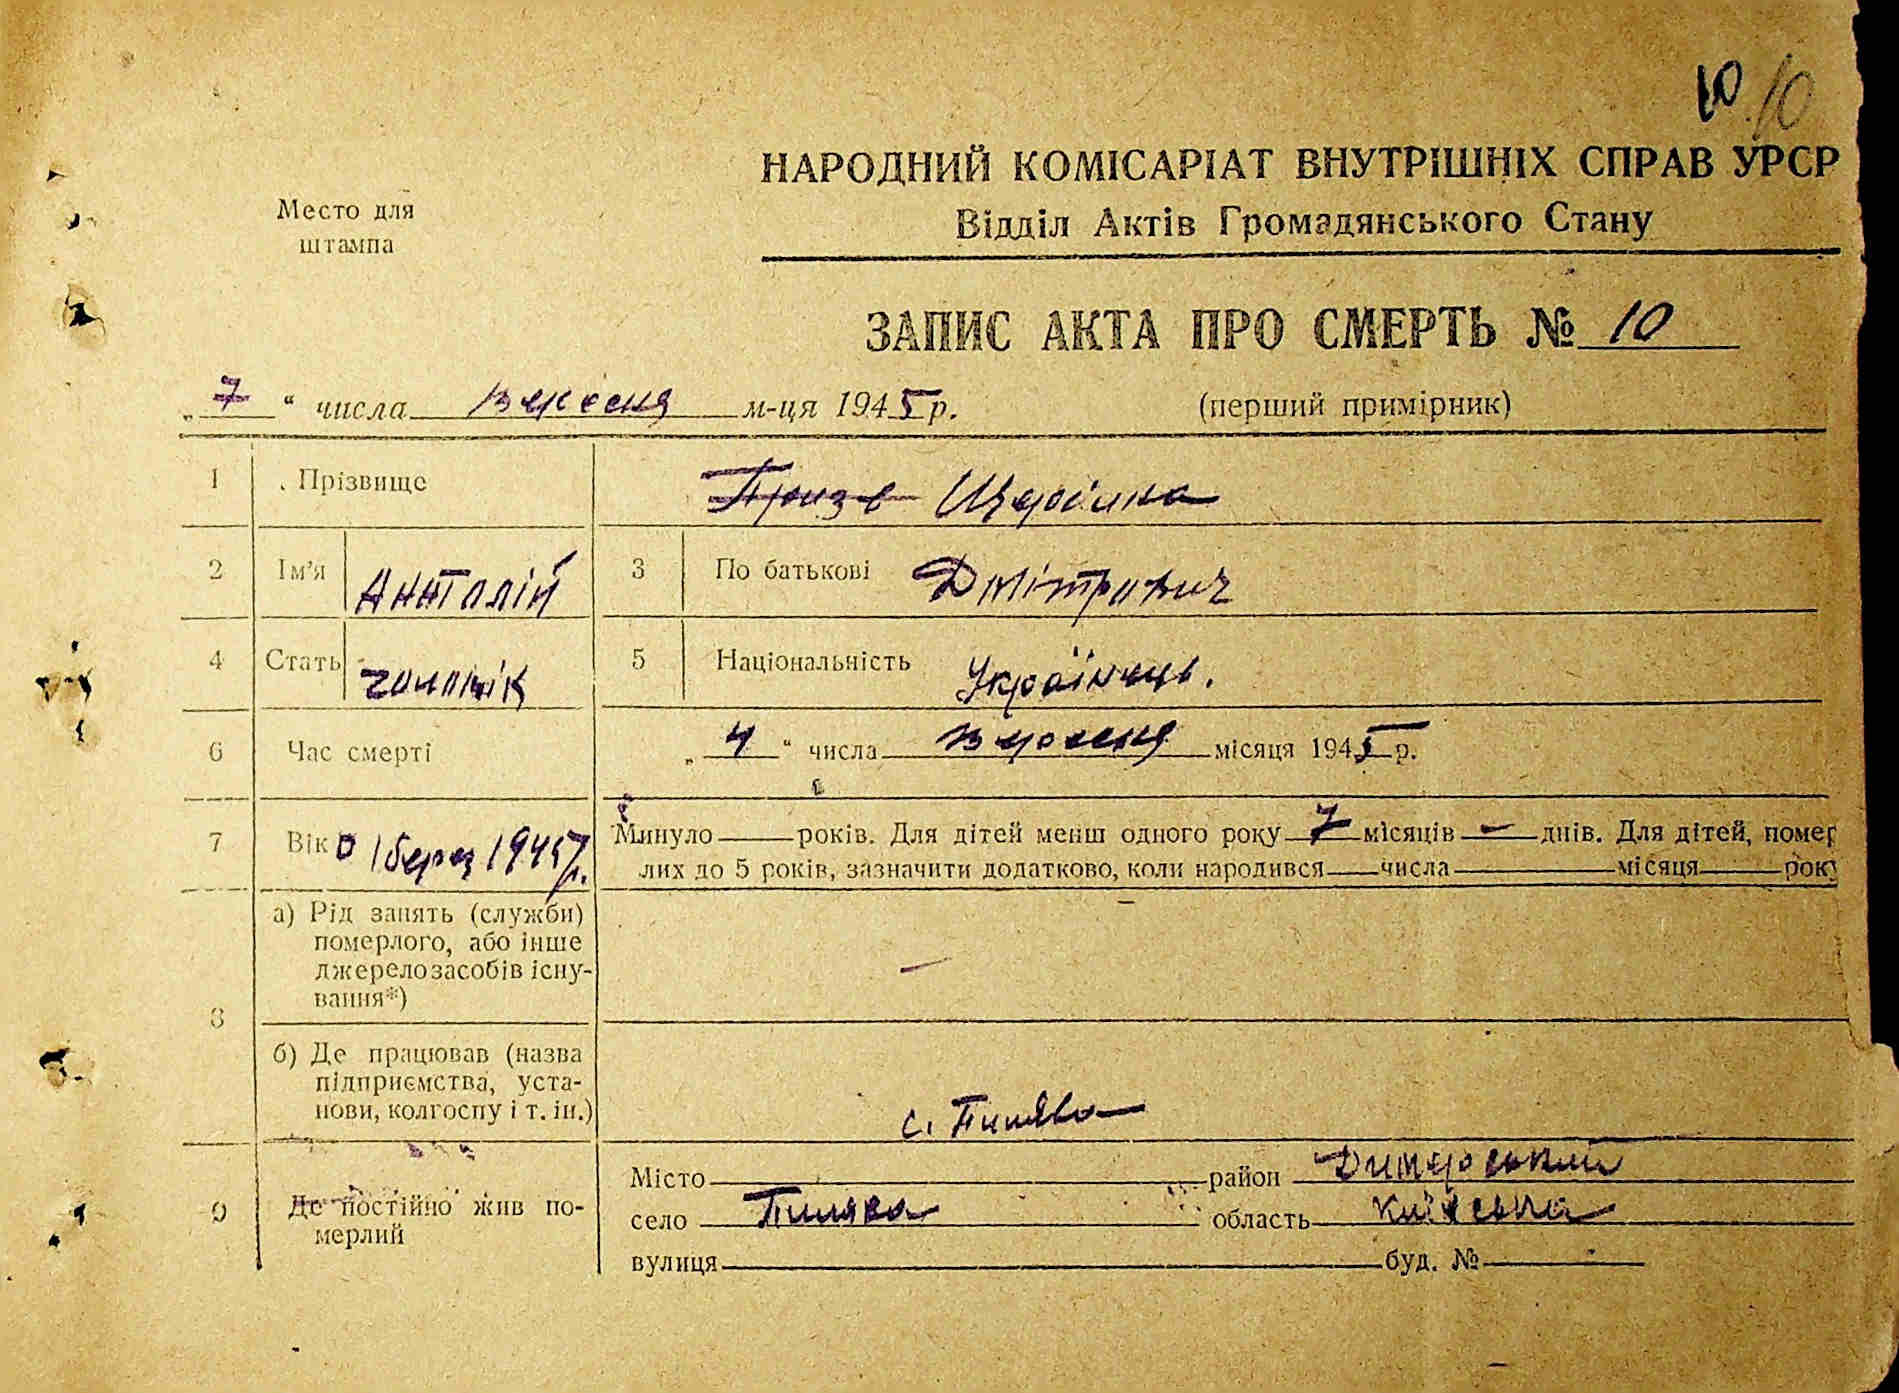 10 10
НАРОДНИЙ КОМІСАРІАТ ВНУТРІШНІХ СПРАВ УРСР
Место для
штампа
Відділ Актів Громадянського Стану
ЗАПИС АКТА ПРО СМЕРТЬ № 10
„ 7 “ числа вересня м-ця 1945 р. (перший примірник)
1 Прізвище
2 Ім'я Анатолій 3 По батькові Дмітрович
4 Стать чоловік 5 Національність Українець.
6 Час смерті „ 4 “ числа вересня місяця 1945 р.
7 Вік 1945 р. Минуло років. Для дітей менш одного року 7 місяців — днів. Для дітей, помер
лих до 5 років, зазначити додатково, коли народився числа місяця року
8 а) Рід занять (служби)
померлого, або інше
джерело засобів існу-
вання*) —
б) Де працював (назва
підприємства, уста-
нови, колгоспу і т. ін.)
с. Пилява
9 Де постійно жив по-
мерлий
Місто район Димерський
село Пилява область Київська
вулиця буд. №